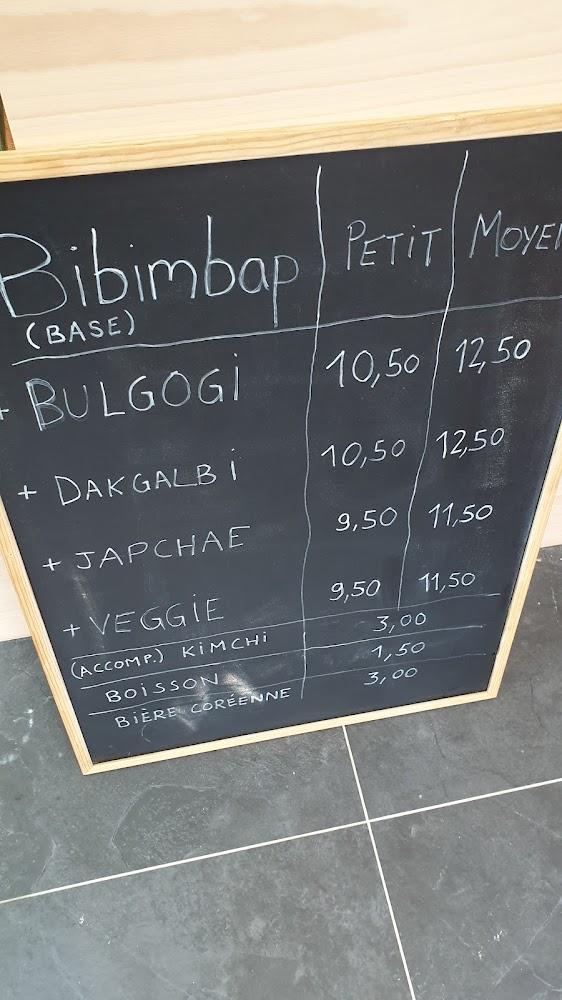 Bibimbap PETIT MOYE
(BASE)
+ BULGOGI 10,50 12,50
+ DAKGALBI 10,50 12,50
+ JAPCHAE 9,50 11,50
+ VEGGIE 9,50 11,50
(ACCOMP.) KIMCHI 3,00
BOISSON 1,50
BIÈRE CORÉENNE 3,00